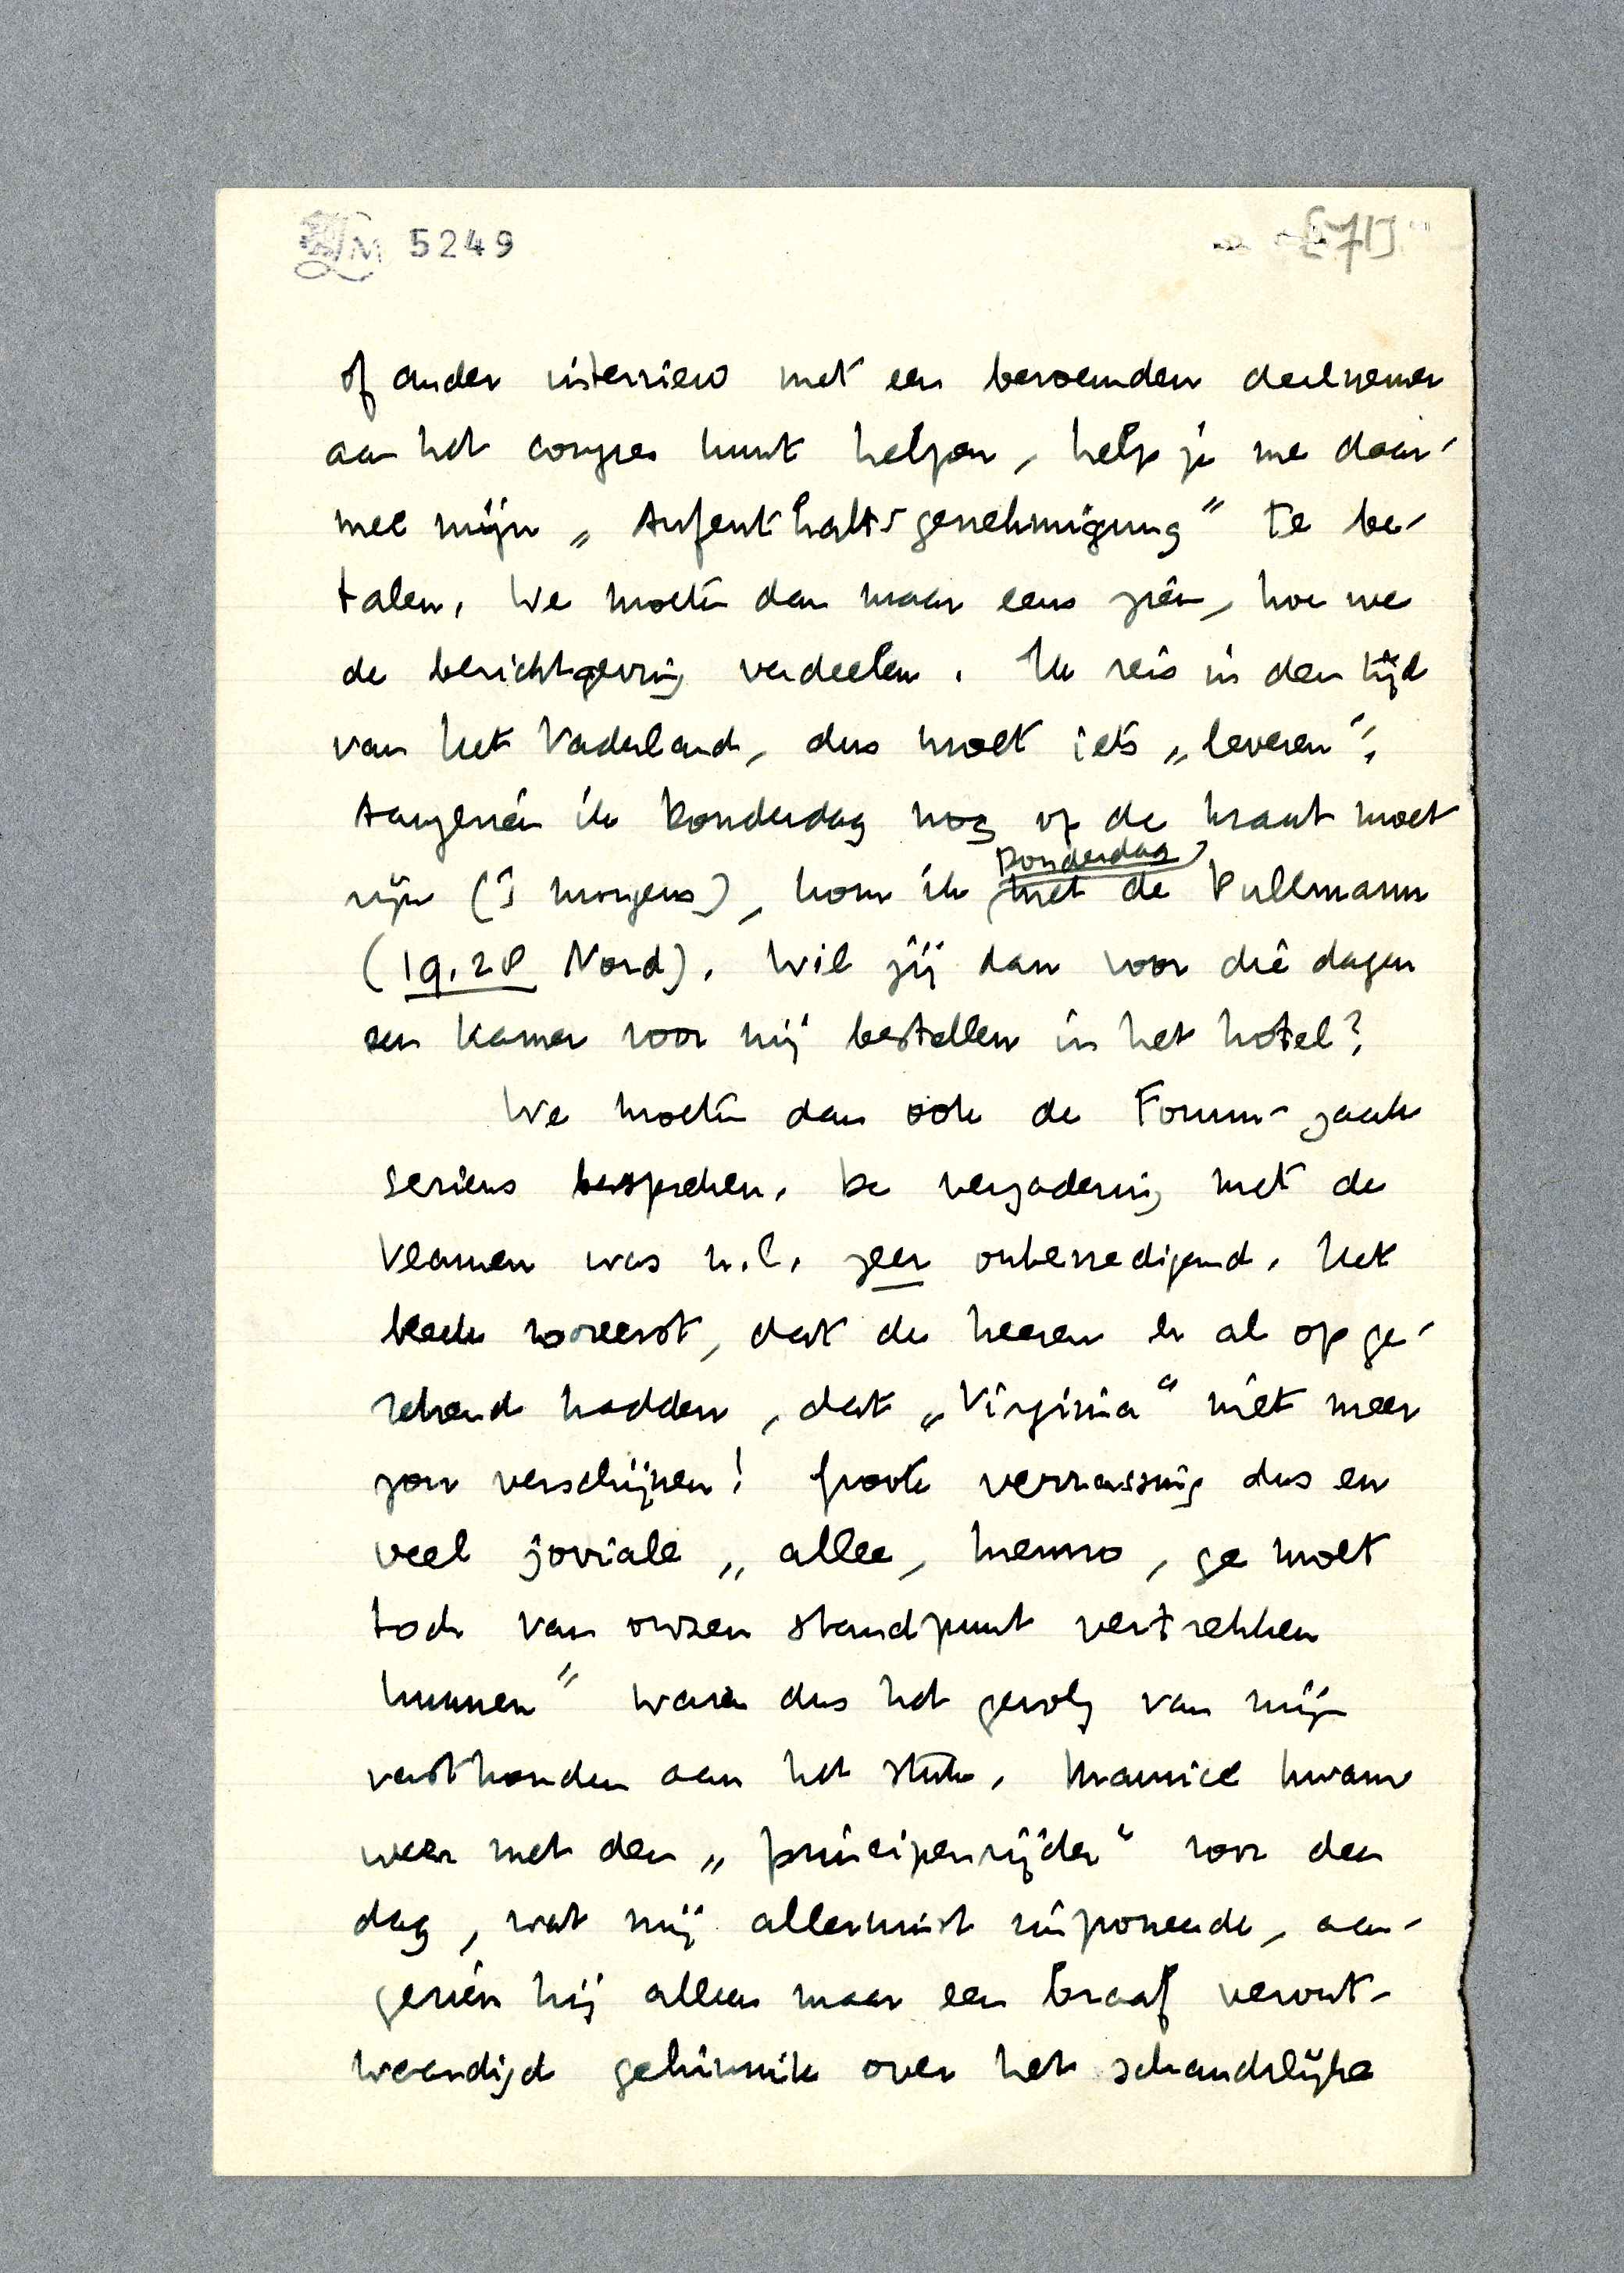 LM 5249
[71]
of ander interview met een beroemden deelnemer
aan het congres kunt helpen, help je me daar-
mee mijn „Aufenthaltsgenehmigung” te be-
talen. We moeten dan maar eens zien, hoe we
de berichtgeving verdeelen. Ik reis in den tijd
van het Vaderland, dus moet iets „leveren”.
Aangezien ik Donderdag nog op de krant moet
zijn ('s morgens), kom ik Donderdag met de Pullmann
(19.28 Nord). Wil jij dan voor drie dagen
een kamer voor mij bestellen in het hotel?
We moeten dan ook de Forum-zaak
serieus bespreken. De vergadering met de
Vlamen was n.l. zeer onbevredigend. Het
bleek vooreerst, dat de heeren er al op ge-
rekend hadden, dat „Virginia” niet meer
zou verschijnen! Groote verrassing dus en
veel joviale „allee, Menno, ge moet
toch van onzen standpunt vertrekken
kunnen” waren dus het gevolg van mijn
vasthouden aan het stuk. Maurice kwam
weer met den „principenrijder” voor den
dag, wat mij allerminst imponeerde, aan-
gezien hij alleen maar een braaf veront-
waardigd gehinnik over het schandelijke